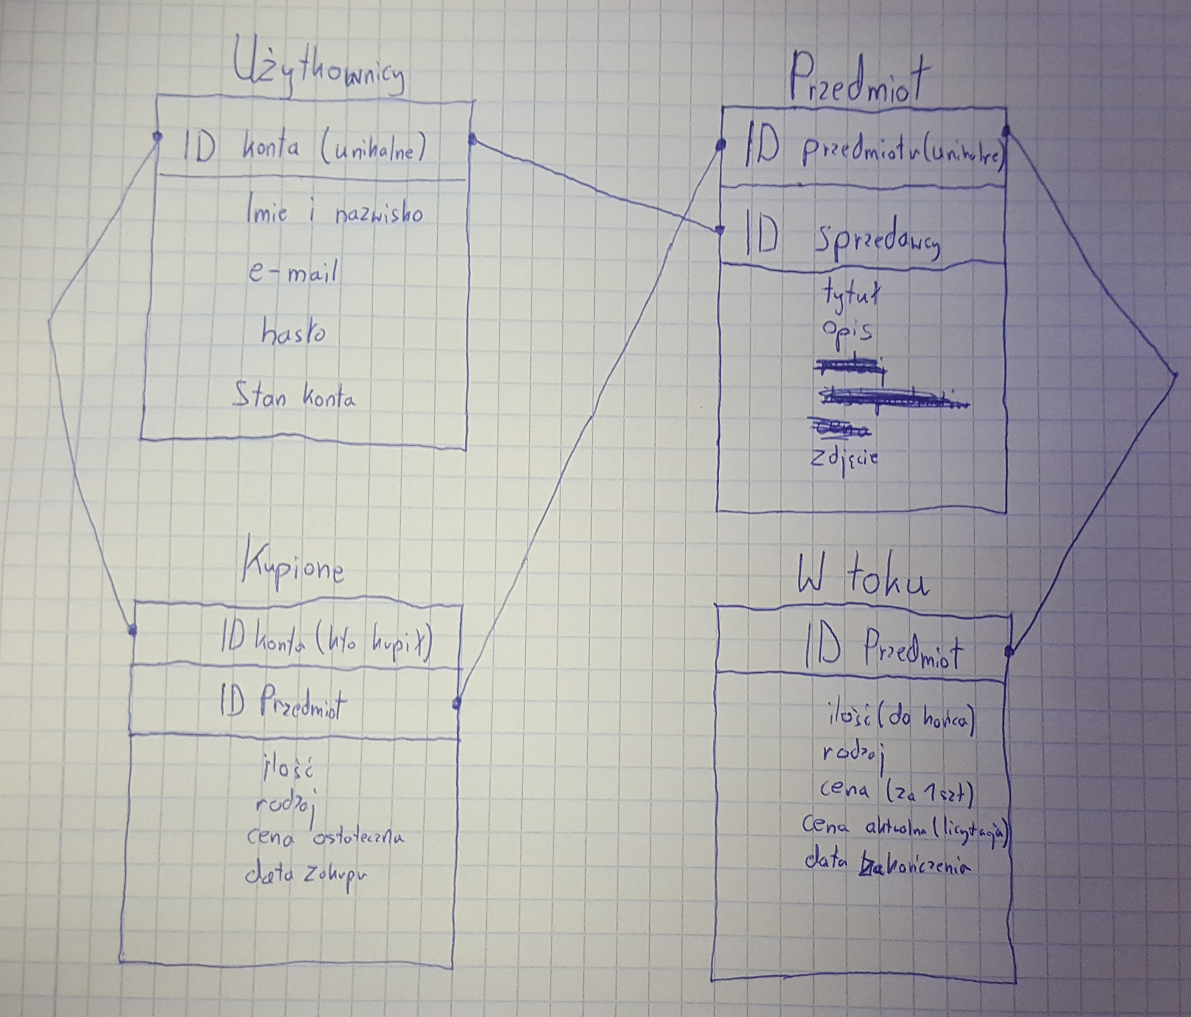 Użytkownicy
ID konta (unikalne)
Imie i nazwisko
e-mail
hasło
Stan konta
Przedmiot
ID przedmiotu (unikalne)
ID sprzedawcy
tytuł
opis
zdjęcie
Kupione
ID konta (kto kupił)
ID Przedmiot
ilość
rodzaj
cena ostateczna
data zakupu
W toku
ID Przedmiot
ilość (do końca)
rodzaj
cena (za 1 szt)
cena aktualna (licytacja)
data zakończenia